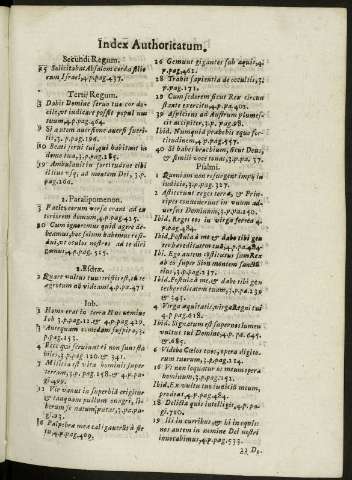 Index Authoritatum.
Secundi Regum.
15 Sollicitabat Absalom corda filio
rum Israel, 4.p.pag.437.
Tertii Regum.
3 Dabit Domine servo tuo cor do-
cile, ut iudicare possit populum
tuum, 4.p.pag.464.
9 Si autem aversione aversi fueri-
tis, 3.p.pag.196.
10 Beati servi tui, qui habitant in
domo tua, 3.p.pag.185.
19 Ambulavit in fortitudine cibi
illius usq; ad montem Dei, 3.p.
pag.266.
2. Paralipomenon.
3 Facies eorum versae erant ad ex
teriorem domum, 4.p.pag.425.
20 Cum ignoremus quid agere de-
beamus, hoc solum habemus resi-
dui, ut oculos nostros ad te diri
gamus, 4.p.pag.515.
2. Esdrae.
2 Quare vultus tuus tristis est, cũ te
aegrotum nõ videam? 4.p.pa.471
Iob.
1 Homo erat in terra Hus nomine
Iob 3.p.pag.12. & 4.p.pag.429.
3 Antequam comedam suspiro, 3.
p.pag.153.
4 Feci qui serviunt ei non sunt sta
biles, 3.p.pag 120. & 341.
7 Militia est vita hominis super
terram, 3.p.pag.158. & 4.p.pa-
gi.409.
11 Vir vanus in superbiã erigitur
& tanquam pullum onagri, li-
berum se natum putat, 3.p.pa-
gi.23.
16 Palpebrae meae caligaverunt à fle
tu, 4.p.pag.409.
26 Gemunt gigantes sub aquis, 4.
p.pag.461.
28 Trahit sapientia de occultis, 3.
p.pag.171.
29 Cum sederem sicut Rex circun
stante exercitu, 4.p.pa.402.
39 Aspiciens ad Austrum plumes-
cit accipiter, 3.p.pag.98.
Ibid. Nunquid praebebis equo for-
titudinem, 4.p.pag.557.
40 Si habes brachium, sicut Deus,
& simili voce tonas, 3.p.pa.37.
Psalmi.
1 Quoniam non resurgent impij in
iudicio, 3.p.pag.327.
2 Astiterunt reges terrae, & Prin-
cipes convenerunt in unum ad-
versus Dominum, 3.p.pa.250.
Ibid. Reges eos in virga ferrea 4.
p.pag.484.
Ibid. Postula à me, & dabo tibi gen
tes haereditatem tuã, 4.p.pa.484.
Ibi. Ego autem constitutus sum Rex
ab eo super Sion montem sanctũ
eius, 3.p.pag.137.
Ibid. Postula à me, & dabo tibi gen
tes haereditatem tuam, 3.p.pa.239
& 343.
4 Virga aequitatis, virga Regni tui
4.p.pag.618.
Ibid. Signatum est super nos lumen
vultus tui Domine, 4.p.pa.645.
& 685.
6 Videbo Coelos tuos, opera digito
rum tuorum, 3.p.pag.124.
16 Vt non loquatur os meum opera
hominum, 3.p.pag.151.
Ibid. Ex vultu tuo iudiciũ meum,
prodeat, 4.p.pag.484.
18 Delicta quis intelligit, 4.p.pa-
gi.720.
19 Hi in curribus, & hi in equis
nos autem in nomine Dei nostri
invocabimus, 4.p.pag.533.